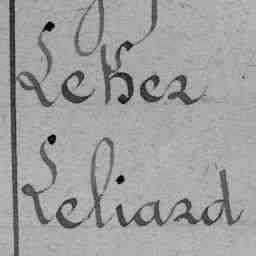 Le Her
Leliard